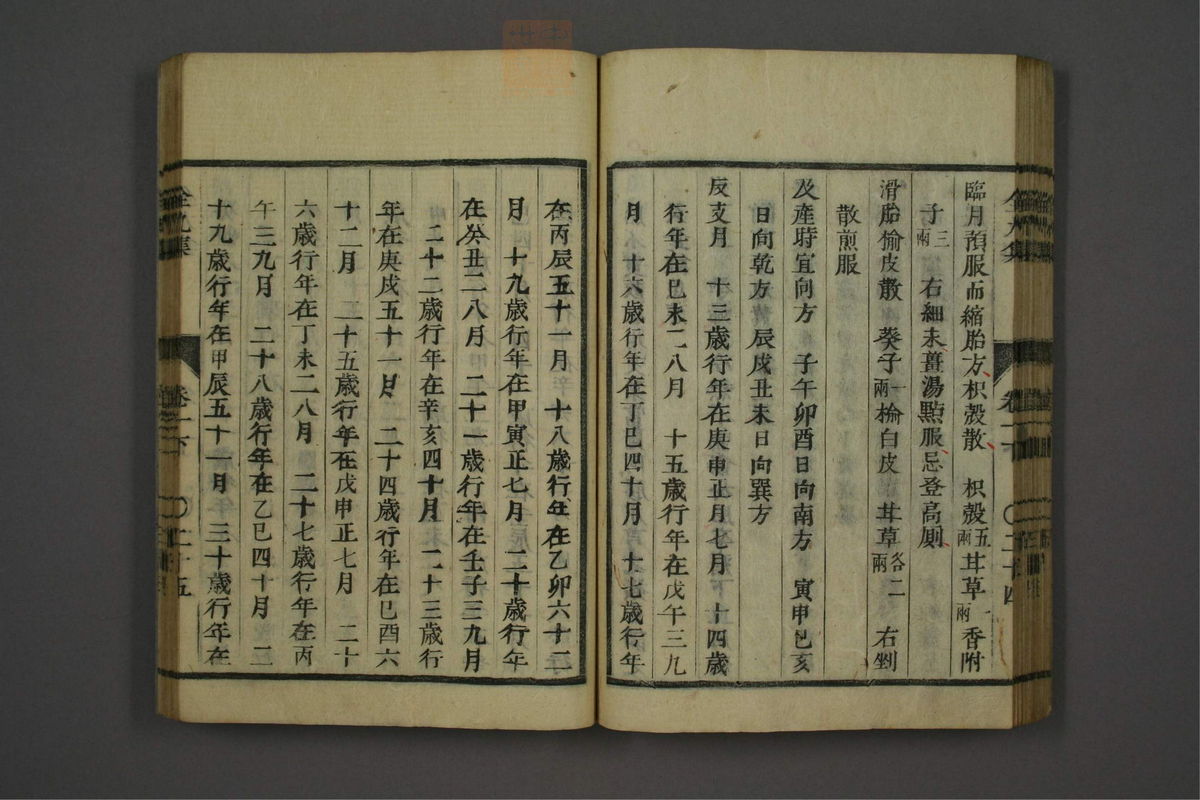 臨月預服而縮胎方枳殼散　枳殼五兩　甘草一兩　香附
子三兩　右細末薑湯點服忌登高厠
滑胎榆皮散　葵子一兩　榆白皮　甘草各二兩　右剉
散煎服
及產時宜向方　子午卯酉日向南方　寅申巳亥
日向乾方　辰戌丑未日向巽方
反支月　十三歲行年在庚申正月七月　十四歲
行年在巳未二八月　十五歲行年在戊午三九
月　十六歲行年在丁巳四十月　十七歲行年
在丙辰五十一月　十八歲行年在乙卯六十二
月　十九歲行年在甲寅正七月　二十歲行年
在癸丑二八月　二十一歲行年在壬子三九月
二十二歲行年在辛亥四十月　二十三歲行
年在庚戌五十一月　二十四歲行年在巳酉六
十二月　二十五歲行年在戊申正七月　二十
六歲行年在丁未二八月　二十七歲行年在丙
午三九月　二十八歲行年在乙巳四十月　二
十九歲行年在甲辰五十一月　三十歲行年在
全九集　卷一下　〇二十四
全九集　卷一下　〇二十五